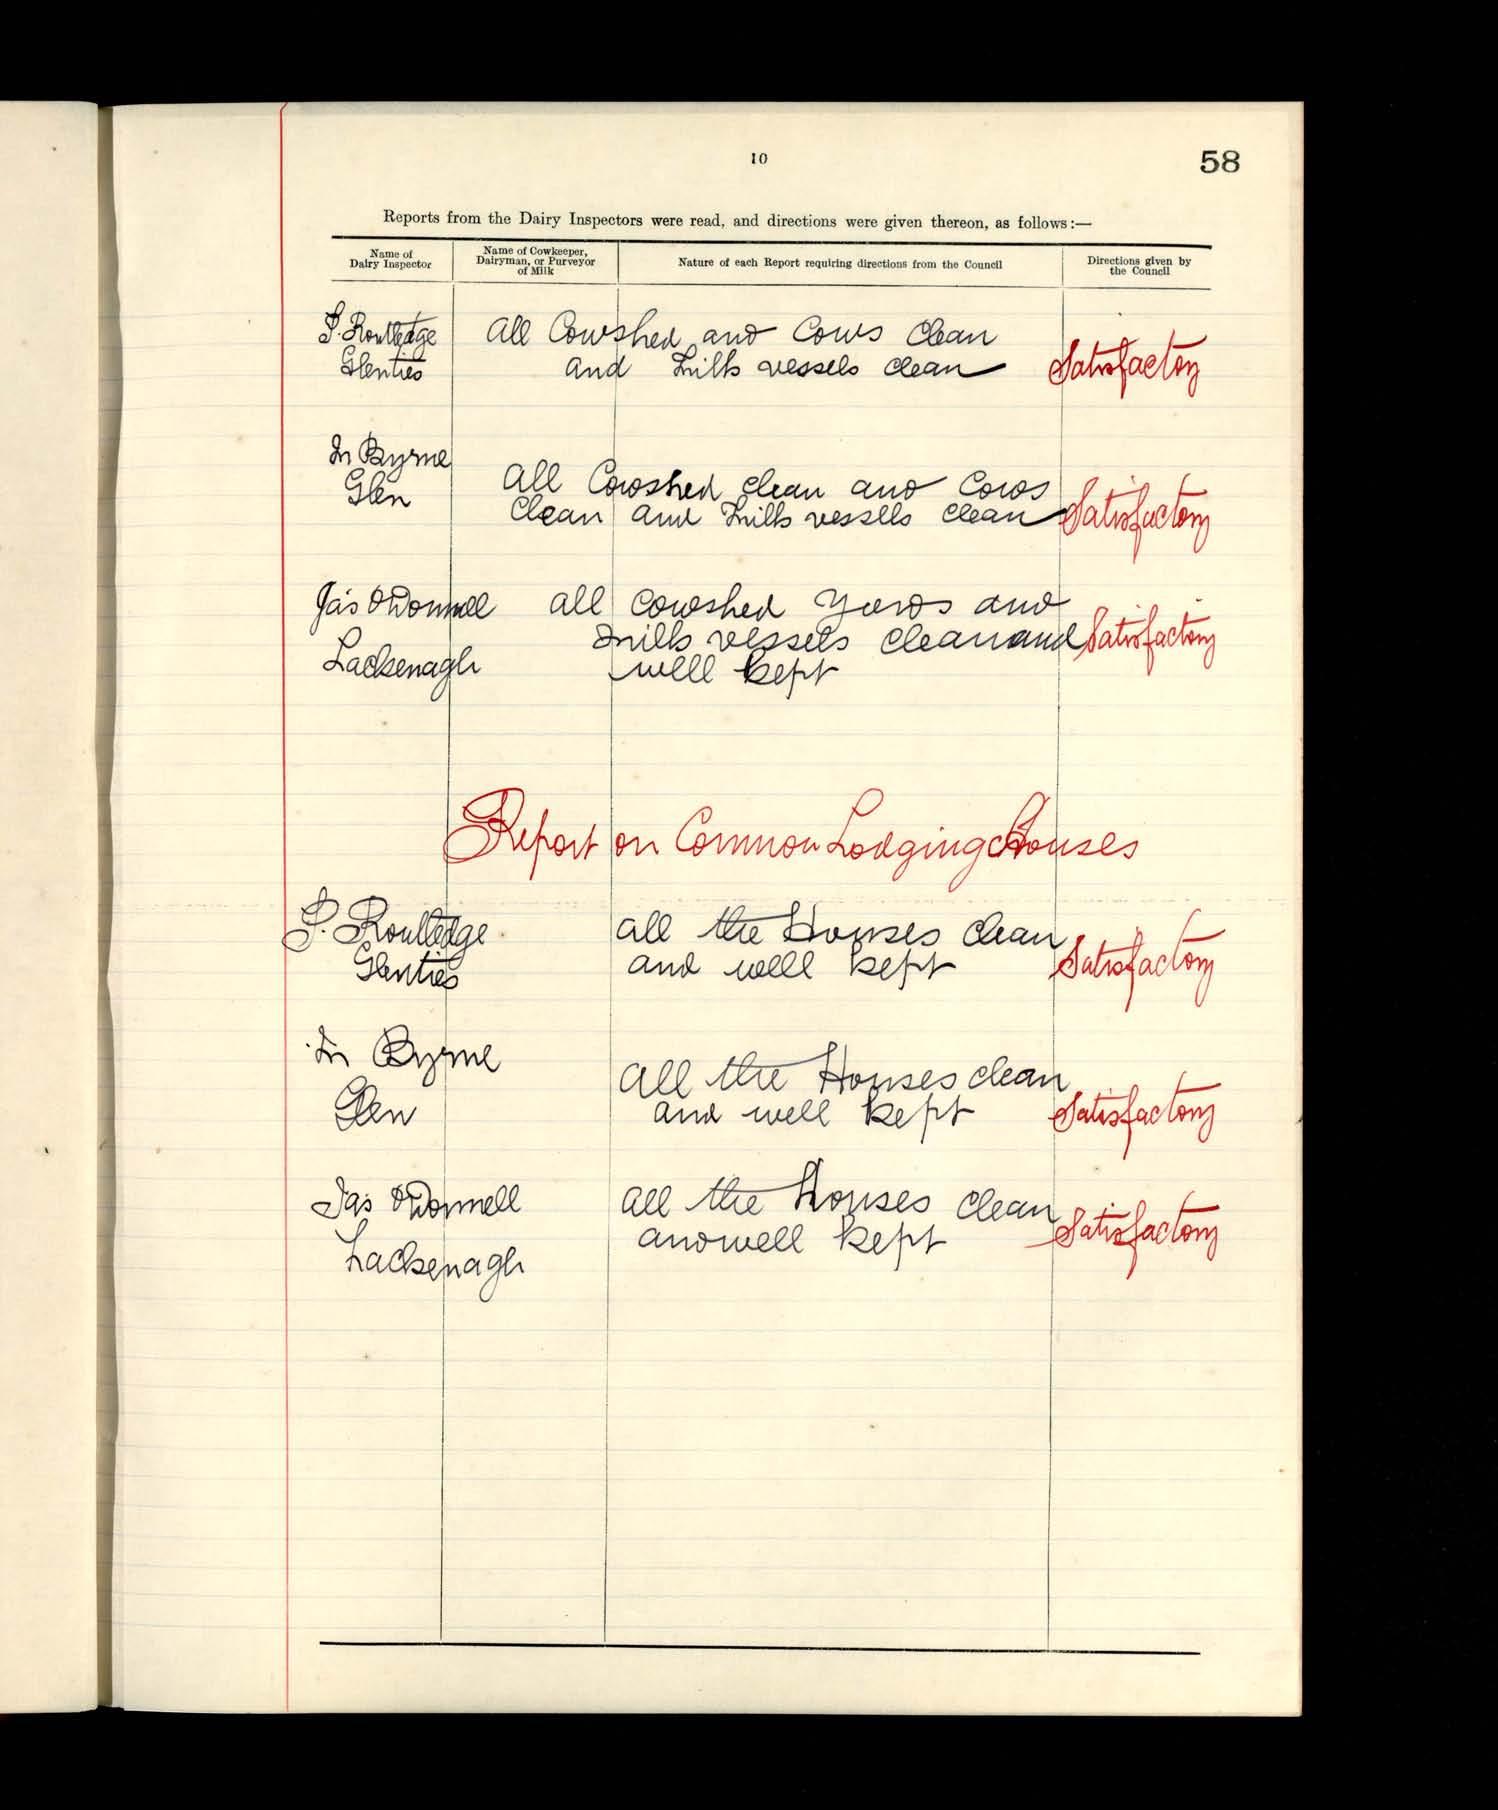 10
58
Reports from the Dairy Inspectors were read, and directions were given thereon, as follows:—
Name of Dairy Inspector
Name of Cowkeeper, Dairyman, or Purveyor of Milk
Nature of each Report requiring directions from the Council
Directions given by the Council
P. Routledge
Glenties
All Cowshed and Cows Clean
and Milk vessels clean
Satisfactory
Jn Byrne
Glen
All Cowshed clean and Cows
Clean and Milk vessels clean
Satisfactory
Jas O'Donnell
Lackenagh
all cowshed yards and
Milk vessels clean and
well kept
Satisfactory
Report on Common Lodging Houses
P. Routledge
Glenties
all the Houses clean
and well kept
Satisfactory
Jn Byrne
Glen
all the Houses clean
and well kept
Satisfactory
Jas O'Donnell
Lackenagh
all the houses clean
and well kept
Satisfactory